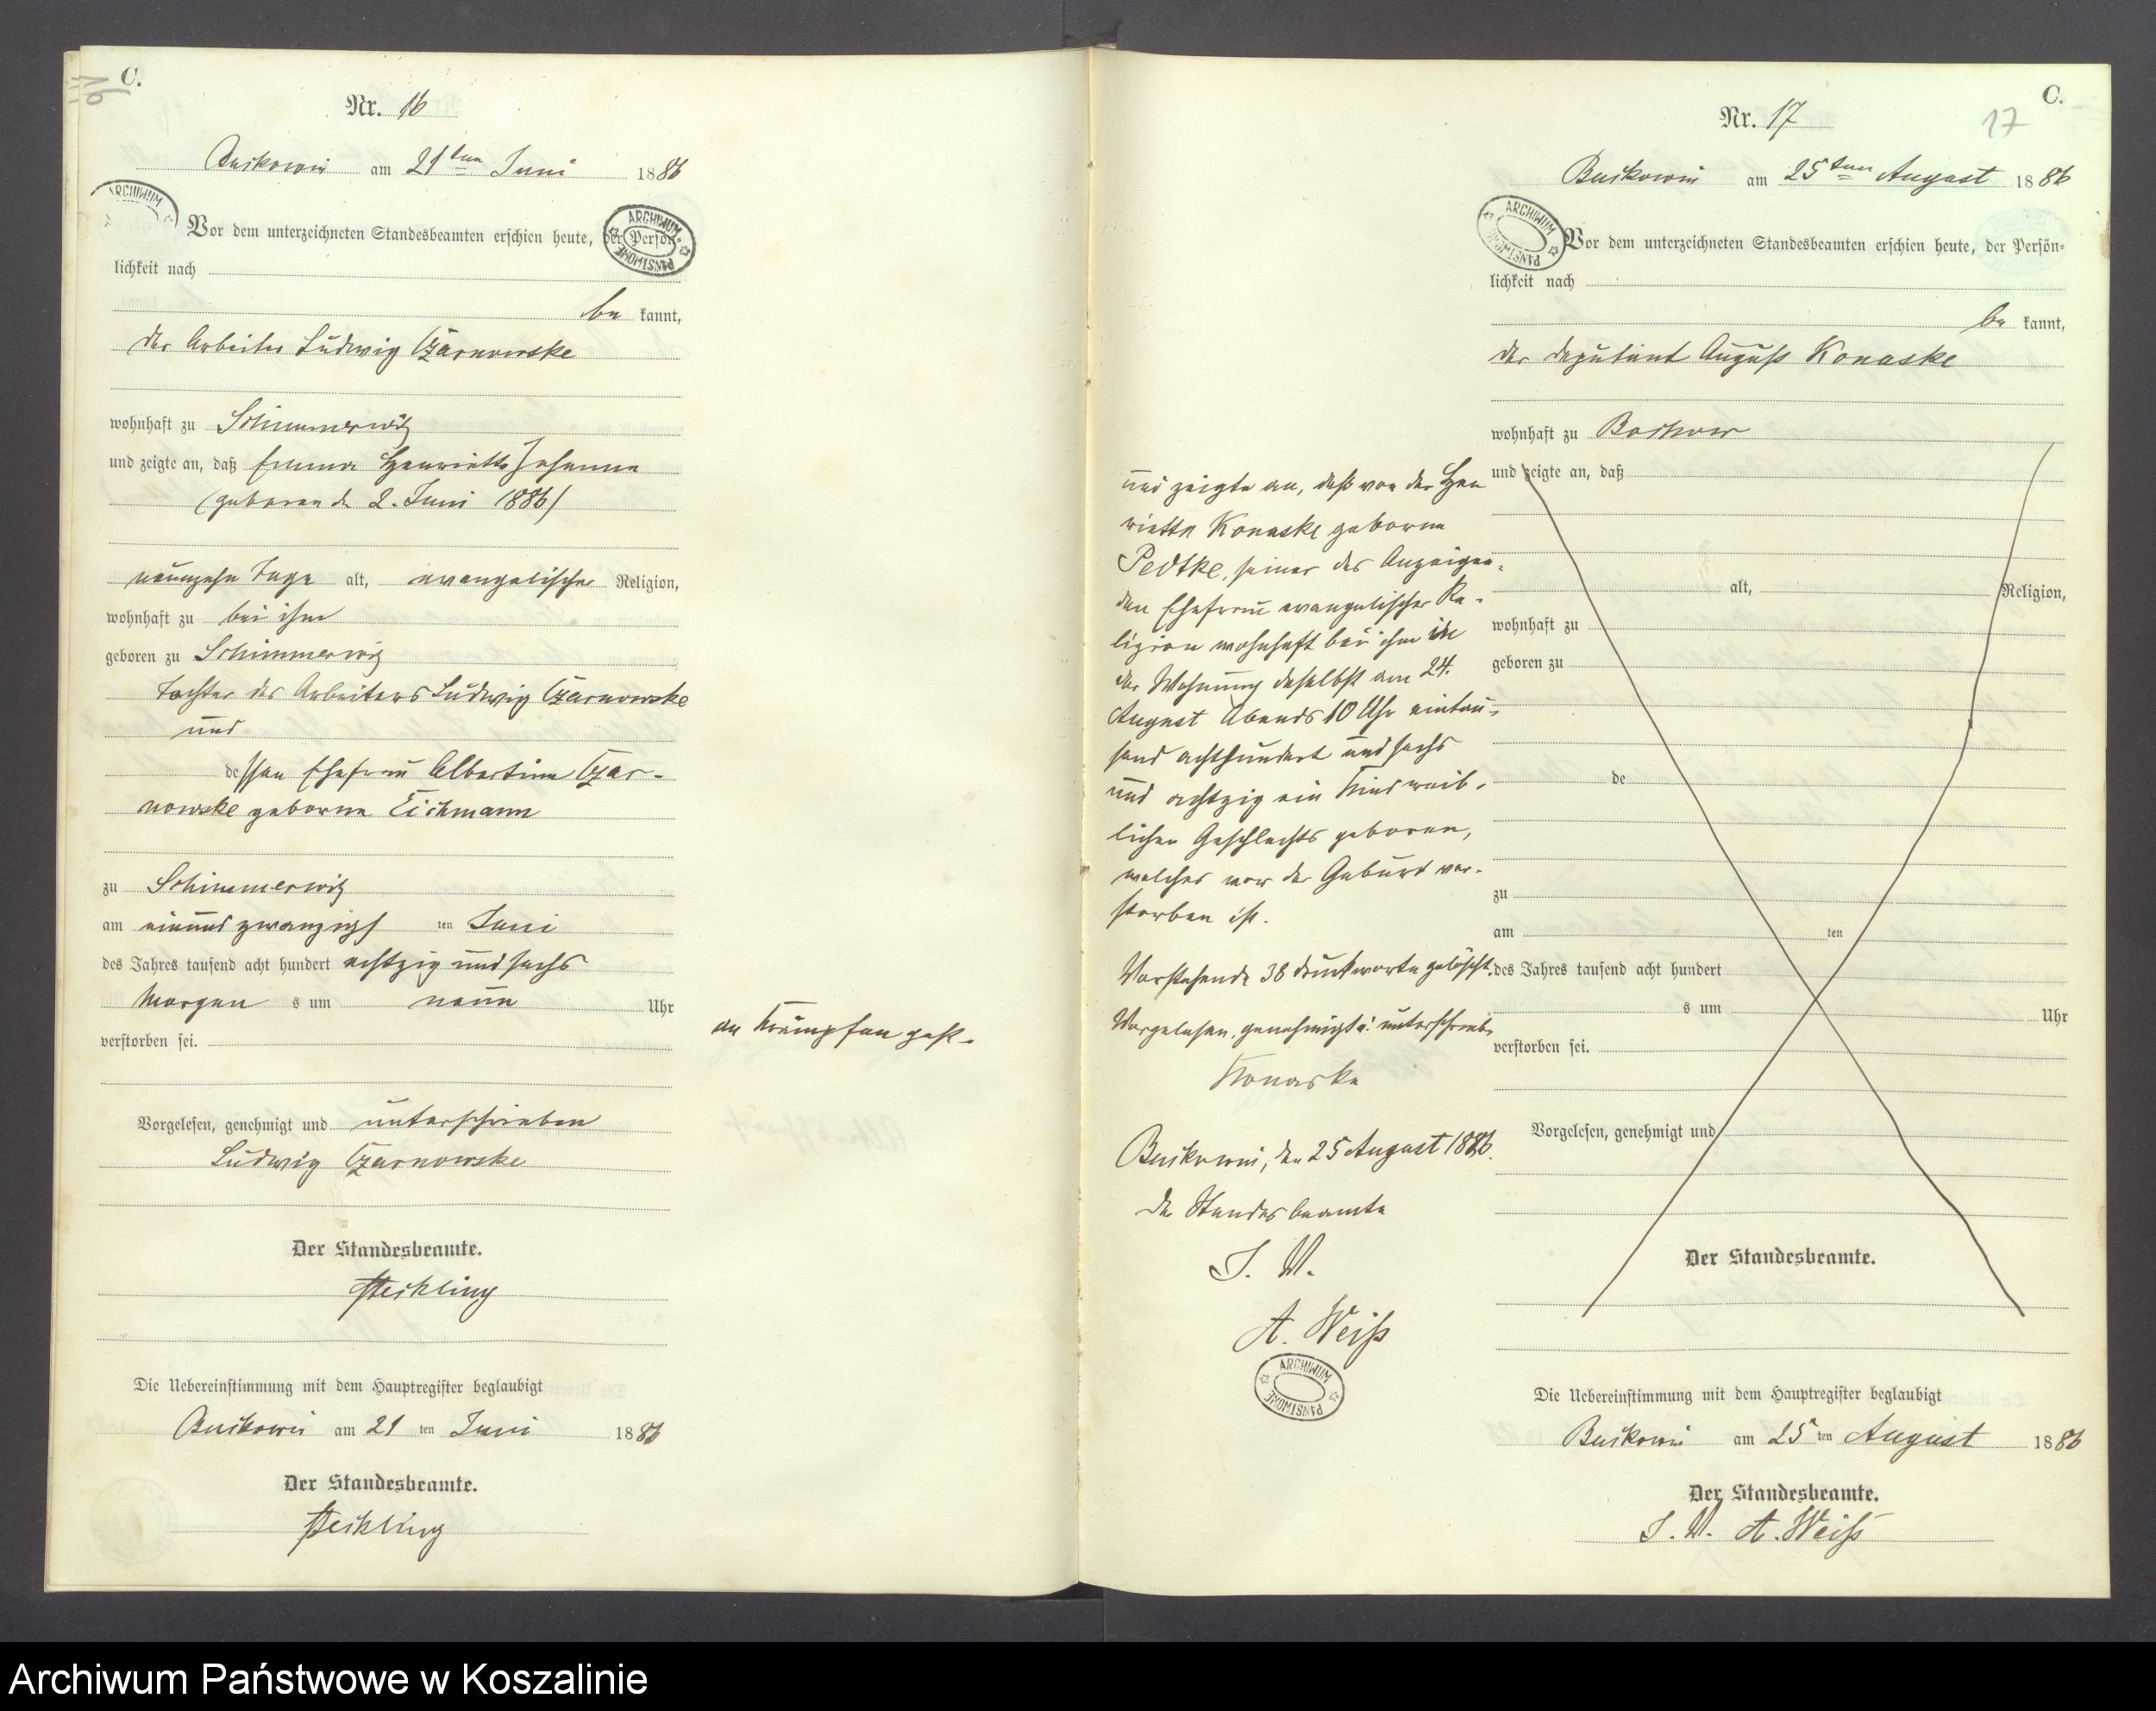 C.
16
Nr. 16
Buckowin am 21ten Juni 1886
ARCHIWUM
Vor dem unterzeichneten Standesbeamten erschien heute, der Persön-
ARCHIWUM PAŃSTWOWE
lichkeit nach
be kannt,
der Arbeiter Ludwig Czarnowske
wohnhaft zu Schimmerwitz
und zeigte an, daß Emma Henriette Johanna
(geboren d. 2. Juni 1886)
neunzehn Tage alt, evangelischer Religion,
wohnhaft zu bei ihm
geboren zu Schimmerwitz
Tochter des Arbeiters Ludwig Czarnowske
und
dessen Ehefrau Albertine Czar-
nowske geborne Eichmann
zu Schimmerwitz
am einundzwanzigs ten Juni
des Jahres tausend acht hundert achtzig und sechs
Morgen s um neun Uhr
verstorben sei.
an Krämpfen gest.
Vorgelesen, genehmigt und unterschrieben
Ludwig Czarnowske
Der Standesbeamte.
Die Uebereinstimmung mit dem Hauptregister beglaubigt
Buckowin am 21 ten Juni 1886
Der Standesbeamte.
C.
17
Nr. 17
Buckowin am 25ten August 1886
ARCHIWUM PAŃSTWOWE
Vor dem unterzeichneten Standesbeamten erschien heute, der Persön-
lichkeit nach
be kannt,
der Deputant August Konaske
wohnhaft zu Boschow
und zeigte an, daß
alt, Religion,
wohnhaft zu
geboren zu
de
zu
am ten
des Jahres tausend acht hundert
s um Uhr
verstorben sei.
Vorgelesen, genehmigt und
und zeigte an, daß von der Hen
riette Konaske geborne
Pedtke, seiner des Anzeigen-
den Ehefrau evangelischer Re-
ligion wohnhaft bei ihm in
der Wohnung daselbst am 24.
August Abends 10 Uhr eintau-
send achthundert und sechs
und achtzig ein Kind weib-
lichen Geschlechts geboren,
welches vor der Geburt ver-
storben ist.
Vorstehende 38 Druckworte gelöscht.
Vorgelesen, genehmigt u. unterschrieb.
Konaske
Buckowin, den 25 August 1886.
Der Standesbeamte
I. V.
A. Weiß
ARCHIWUM PAŃSTWOWE
Der Standesbeamte.
Die Uebereinstimmung mit dem Hauptregister beglaubigt
Buckowin am 25 ten August 1886
Der Standesbeamte.
I. V. A. Weiß
Archiwum Państwowe w Koszalinie